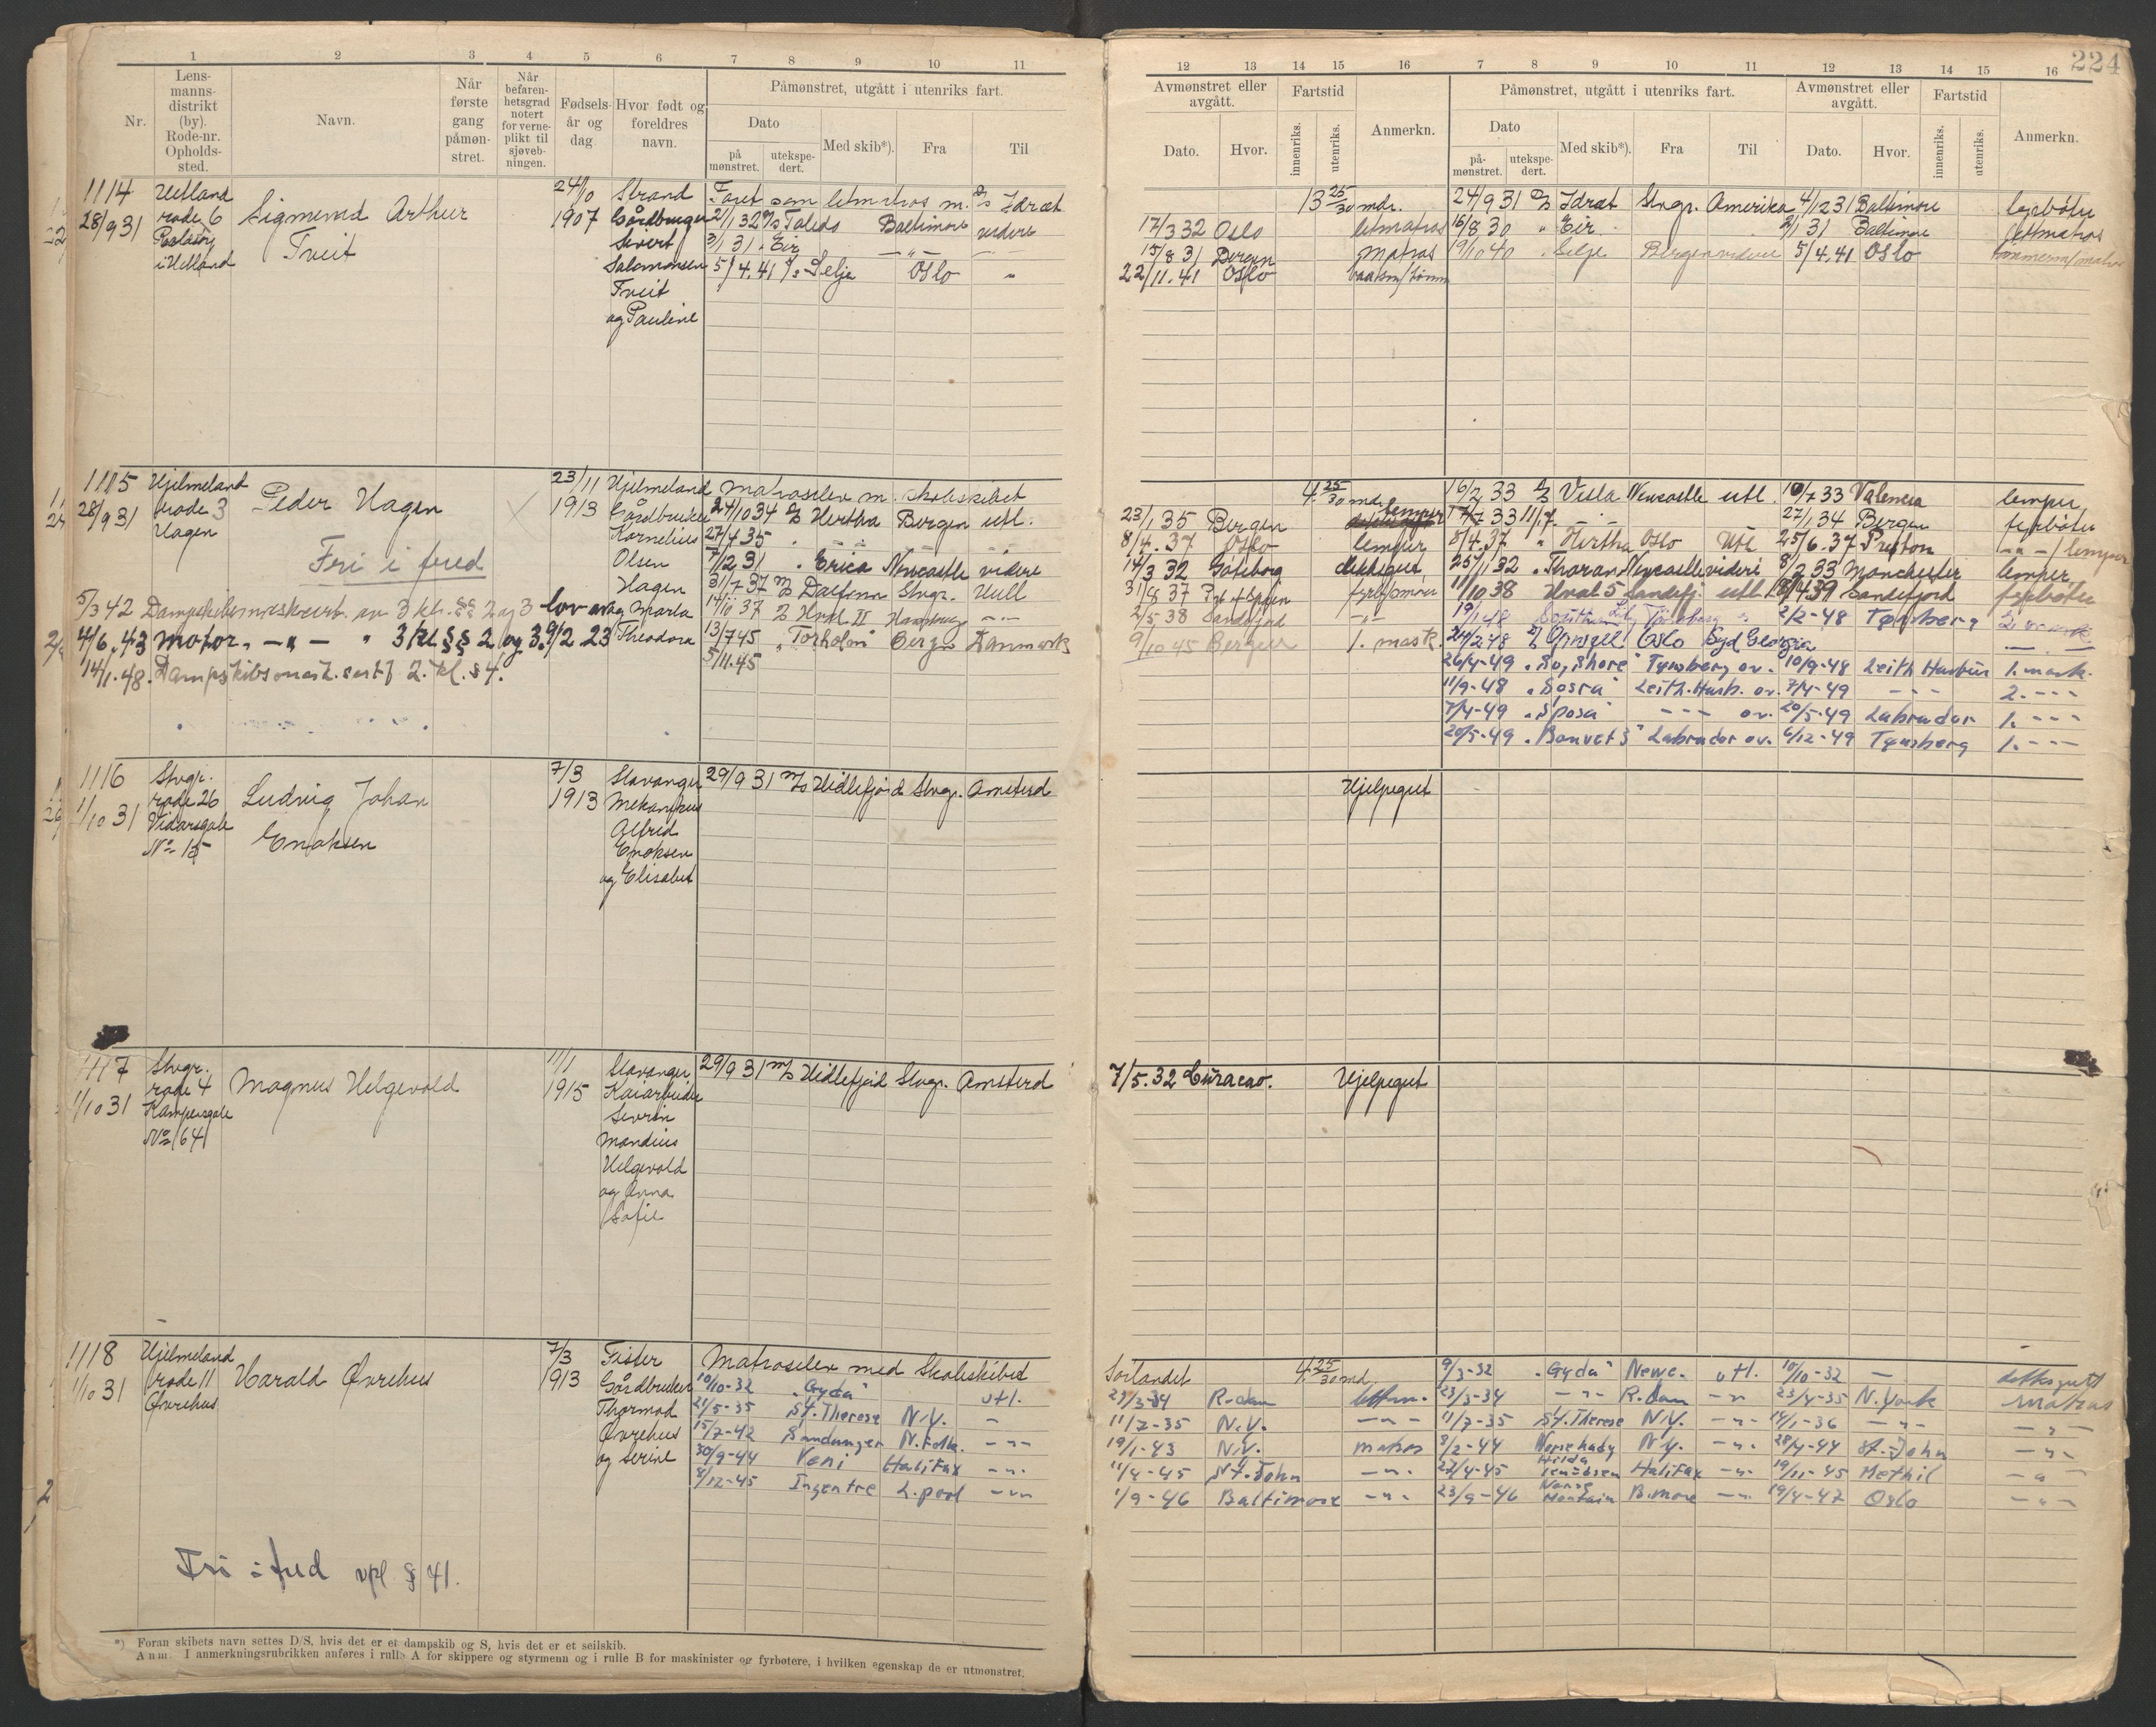 224
1 2 3 4 5 6 7 8 9 10 11
Nr.
Lens-
manns-
distrikt
(by).
Rode-nr.
Opholds-
sted.
Navn.
Når
første
gang
påmøn-
stret.
Når
befaren-
hetsgrad
notert
for verne-
plikt til
sjøveb-
ningen.
Fødsels-
år og
dag
Hvor født og
foreldres
navn.
Påmønstret, utgått i utenriks fart.
Dato
på
mønstret.
utekspe-
dert.
Med skib*).
Fra
Til
12 13 14 15 16 7 8 9 10 11 12 13 14 15 16
Avmønstret eller
avgått.
Fartstid
Dato.
Hvor.
innenriks.
utenriks.
Anmerkn.
Påmønstret, utgått i utenriks fart.
Dato
på-
mønstret.
utekspe-
dert.
Med skib*).
Fra
Til
Avmønstret eller
avgått.
Dato.
Hvor.
Fartstid
innenriks.
utenriks.
Anmerkn.
1114
28/9 31
rode 6
Sigmund Arthur
Tveit
24/10
1907
Strand
Gårdbruger
Sivert
Salomonsen
Tveit
og Pauline
Faret som letmatros m. D/S Idræt
Toledo Baltimore videre
Eir
5/4.41 Selje Oslo "
13 25/30 mdr. 24/9 31 D/S Idræt Stvgr. Amerika 4/12 31 Baltimore
17/3 32 Oslo letmatros 16/8 30 " Eir 2/1 31 Baltimore lettmatros
15/8 31 Bergen matros 19/10 40 " Selje Bergen videre 5/4.41 Oslo
22/11.41 Oslo
1115
28/9 31
Hjelmeland
rode 3
Hagen
Peder Hagen
Fri i fred
23/11
1913
Hjelmeland
Gårdbruker
Kornelius
Olsen
Hagen
og Marta
Theodora
Matroselev m. skoleskibet
24/10 34 D/S Hertha Bergen utl.
27/4 35
7/12 31 " Erica Newcastle videre
31/7 37 Stvgr. Hull
14/10 37 Hval II Hamburg
13/7 45 "Torholm" Bergen Danmark
5/11.45
5/3 42
4/6.43 Motor. -"- " 3 kl §§ 2 og 3. 9/2 23
14/1.48. Dampskibsmask. sertf 2. kl. § 4.
4 25/30 mdr. 16/2 33 D/S Vesla Newcastle utl. 10/7 33 Valencia lemper
23/1 35 Bergen lemper 27/1 34 Bergen fyrbøter
8/4.37 Oslo lemper 8/4.37 " Hertha Oslo Utl 25/6.37 Preston -"-/lemper
14/3 32 Göteborg dekksgut 25/11 32 " Newcastle videre 8/2 33 Manchester lemper
31/8 37 11/10 38 Hval 5 Sandefj. utl. 18/4 39 Sandefjord fyrbøter
2/5 38 Sandefjord -"- 19/1 48 2/2-48 Tønsberg
9/10 45 Bergen 1. mask. 24/2 48 Oslo Syd Georgia
26/4-49 Tønsberg ov. 10/9-48 Leith Harbour 1. mask.
11/9-48 "Sosra" Leith. Harb. ov. 7/4-49 2. ---
7/4-49 "Sposa" --- ov. 20/5-49 Labrador 1. ---
20/5-49 "Bouvet 3" Labrador ov. 6/12-49 Tønsberg 1. ---
1116
1/10 31
Stvgr.
rode 26
Vidarsgate
No 15
Ludvig Johan
Enoksen
7/3
1913
Stavanger
Mekanikus
Alfred
Enoksen
og Elisabet
29/9 31 M/S Hidlefjord Stvgr. Amsterd
Hjelpegut
1117
1/10 31
Stvgr.
rode 4
Kampensgate
No 64
Magnus Helgevold
11/1
1915
Stavanger
Kaiarbeider
Severin
Mandius
Helgevold
og Anna
Sofie
29/9 31 M/S Hidlefjord Stvgr. Amsterd
7/5.32 Curacao. Hjelpegut
1118
1/10 31
Hjelmeland
rode 11
Øvrehus
Harald Øvrehus
7/3
1913
Fister
Gårdbruker
Thormod
Øvrehus
og Serine
Matroselev med Skoleskibet
10/10-32 "Gyda" utl.
21/5-35 St. Therese N.Y. -
15/7-42 Sandanger N.Folk. -"-
30/9-44 Veni Halifax -"-
8/12-45 Ingentre L.pool -"-
Fri i fred vpl. § 41.
Sørlandet 4 25/30 md. 9/3-32 "Gyda" Newc. utl. 10/10-32 - dekksgutt
R.dam 23/3-34 -"- R.dam -"- 23/4-35 N.York matros
11/7-35 N.Y. -"- 11/7-35 St. Therese N.Y. -"- 14/1-36 -"- -"-
19/1-43 N.Y. matros 8/2-44 N.Y. -"- 28/4-44 St. John -"-
11/4-45 St. John -"- 27/4-45 Hilda Halifax -"- 19/11-45 Methil -"-
1/9-46 Baltimore -"- 23/9-46 B.more -"- 19/4-47 Oslo -"-
*) Foran skibets navn settes D/S, hvis det er et dampskib og S, hvis det er et seilskib.
Anm. I anmerkningsrubrikken anføres i rulle A for skippere og styrmenn og i rulle B for maskinister og fyrbøtere, i hvilken egenskap de er utmønstret.